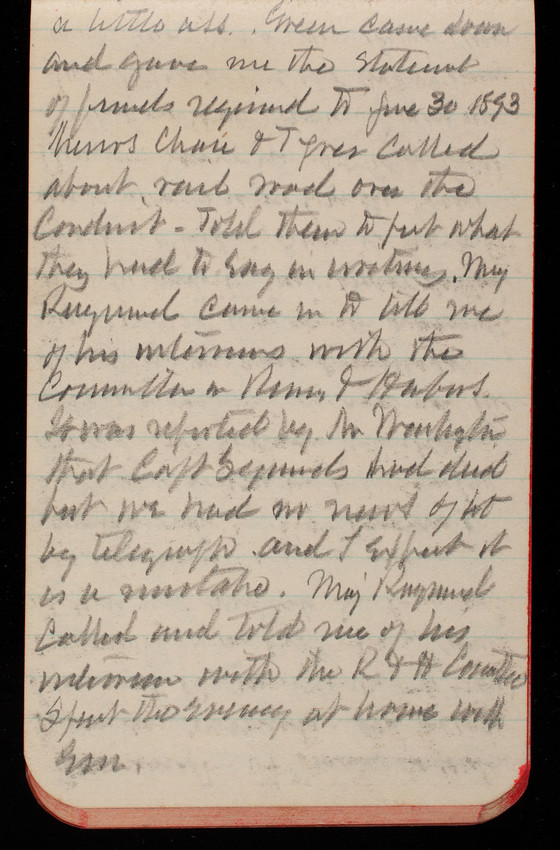 a little ass. Green came down
and gave me the statement
of funds required to June 30 1893
Messrs Chase & Tyree called
about rail road over the
Conduit - Told them to put what
they had to say in writing. Maj
Raymond came in to tell me
of his interviews with the
Committee on Rivers & Harbors.
It was reported by the Washington
that Capt Symonds had died
but we had no news of it
by telegraph and I expect it
is a mistake. Maj Raymond
called and told me of his
interview with the R & H Comttee
Spent the evening at home with
Em.